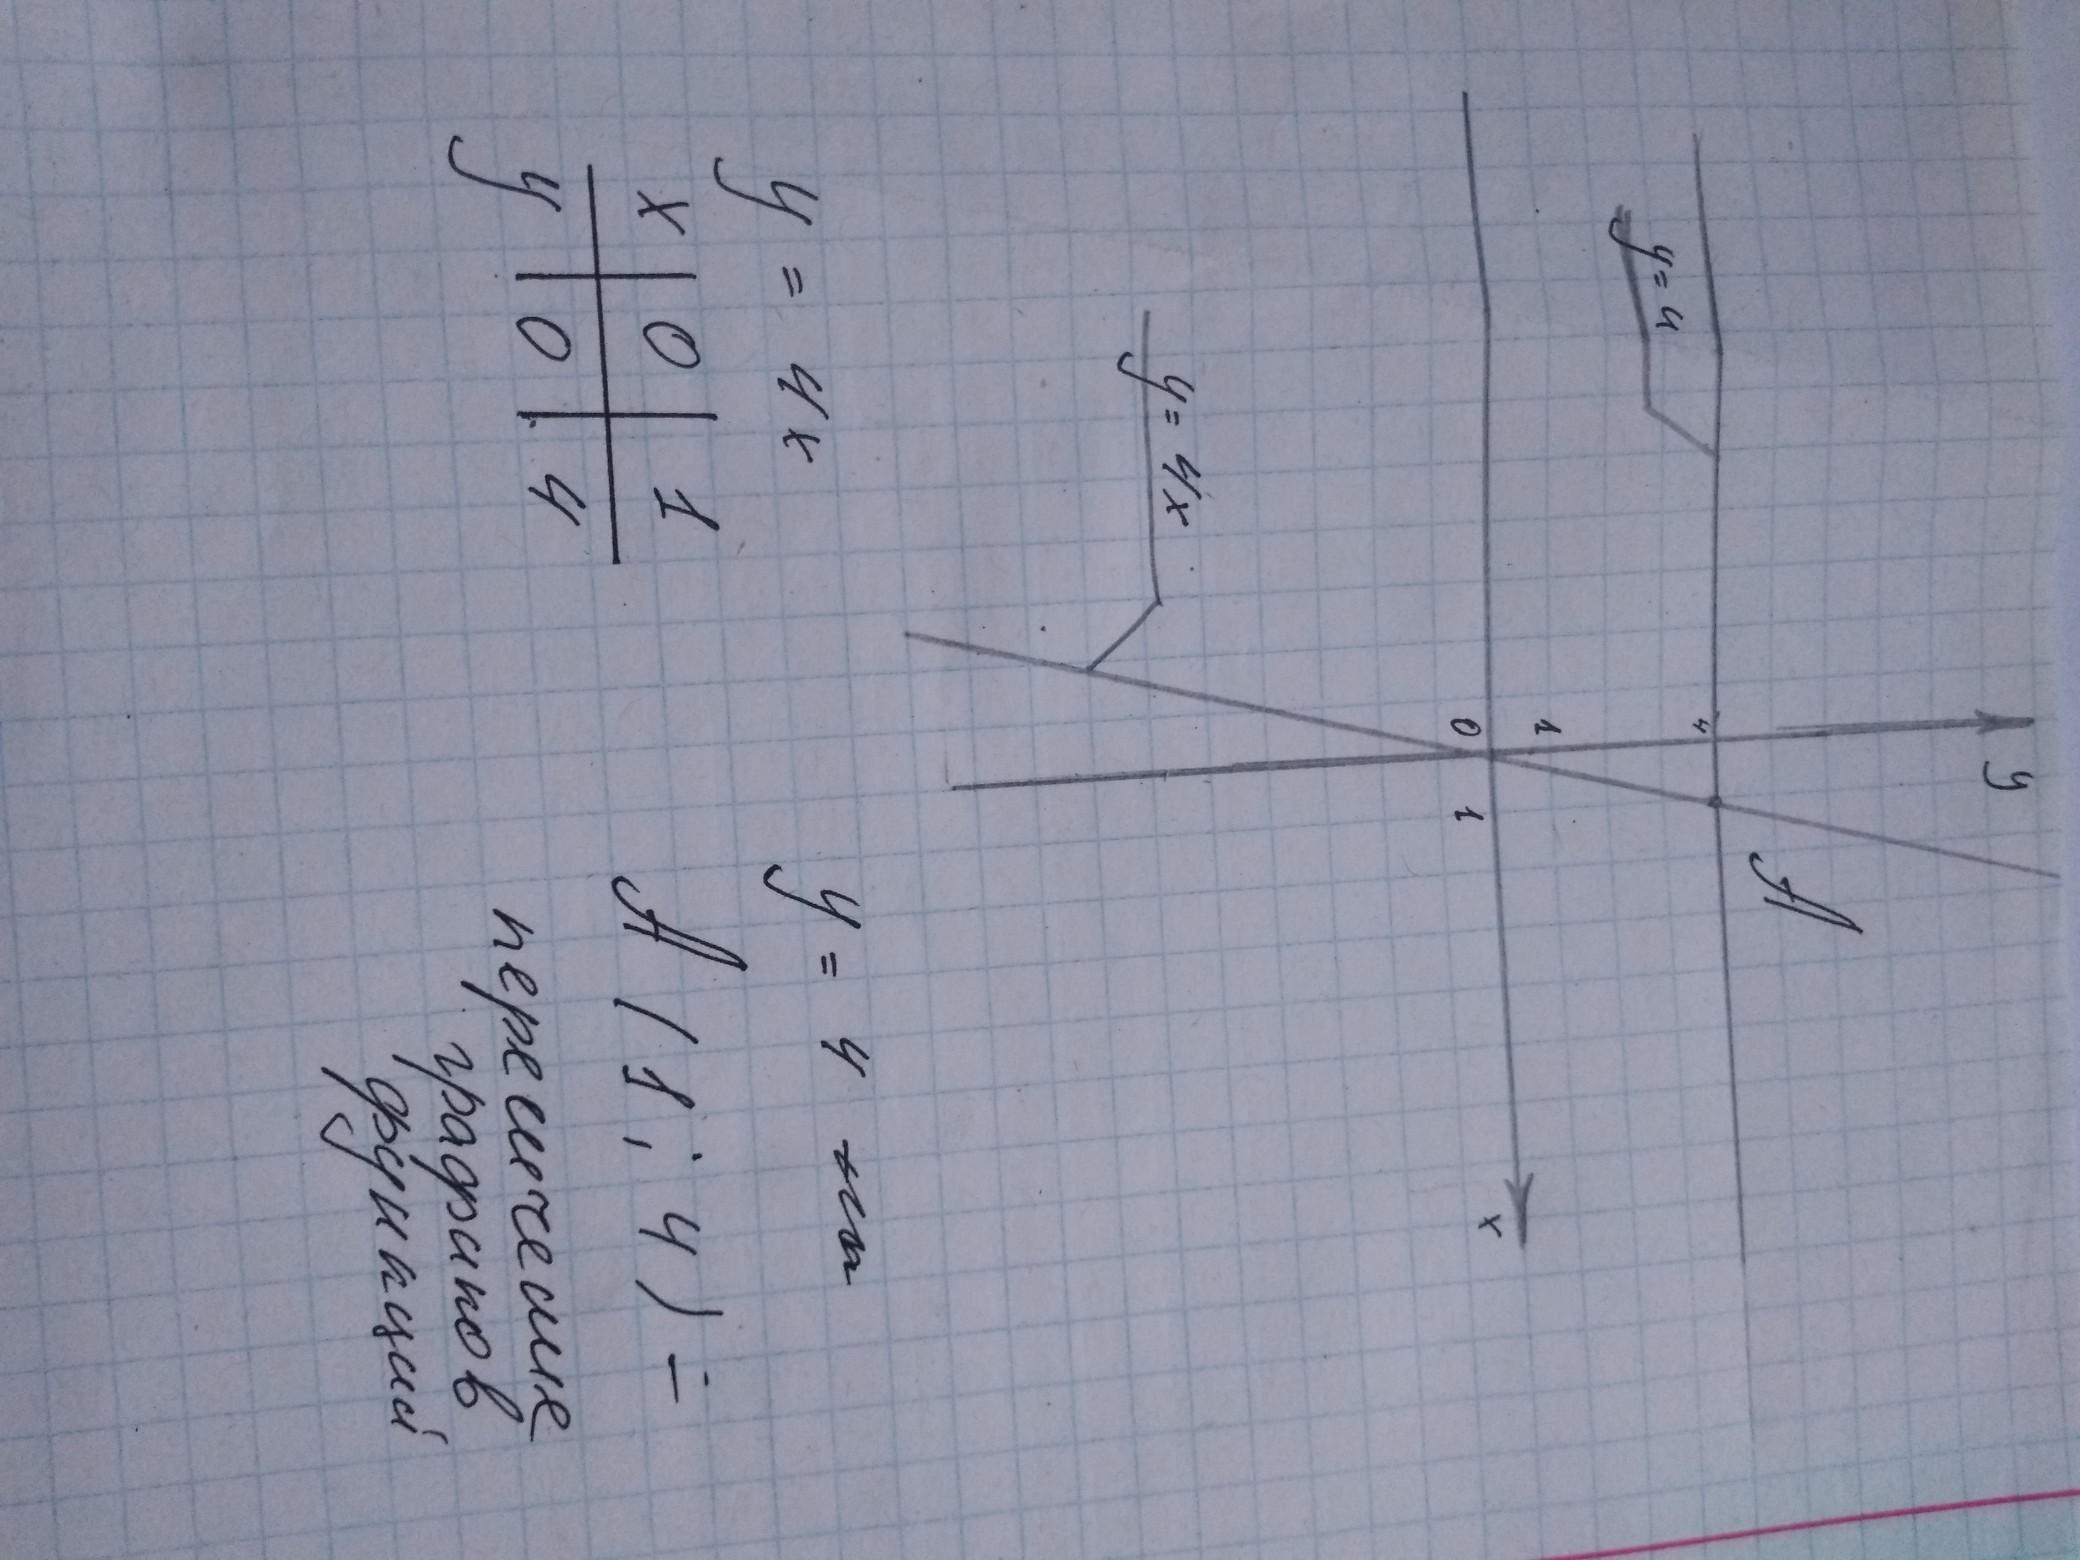 y
A
4
y = 4
1
0
1
x
y = 4x
y = 4x
x 0 1
y 0 4
y = 4
A (1; 4) –
пересечение
графиков
функций